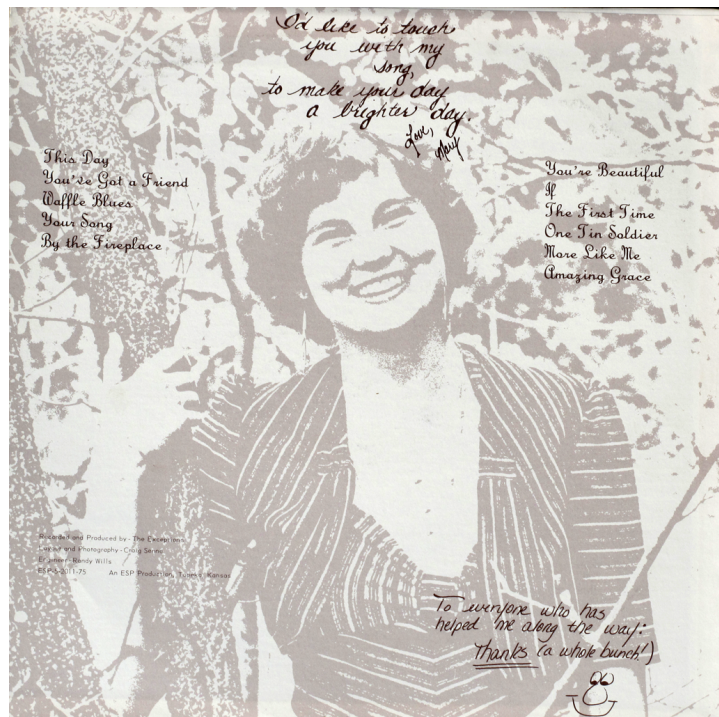 I'd like to touch
you with my
song,
to make your day
a brighter day.
Love,
Mary
This Day
You've Got a Friend
Waffle Blues
Your Song
By the Fireplace
You're Beautiful
If
The First Time
One Tin Soldier
More Like Me
Amazing Grace
Recorded and Produced by - The Exceptions
and Photography - Craig
Engineer - Randy Wills
An ESP Production, Kansas
To everyone who has
helped me along the way:
Thanks (a whole bunch!)